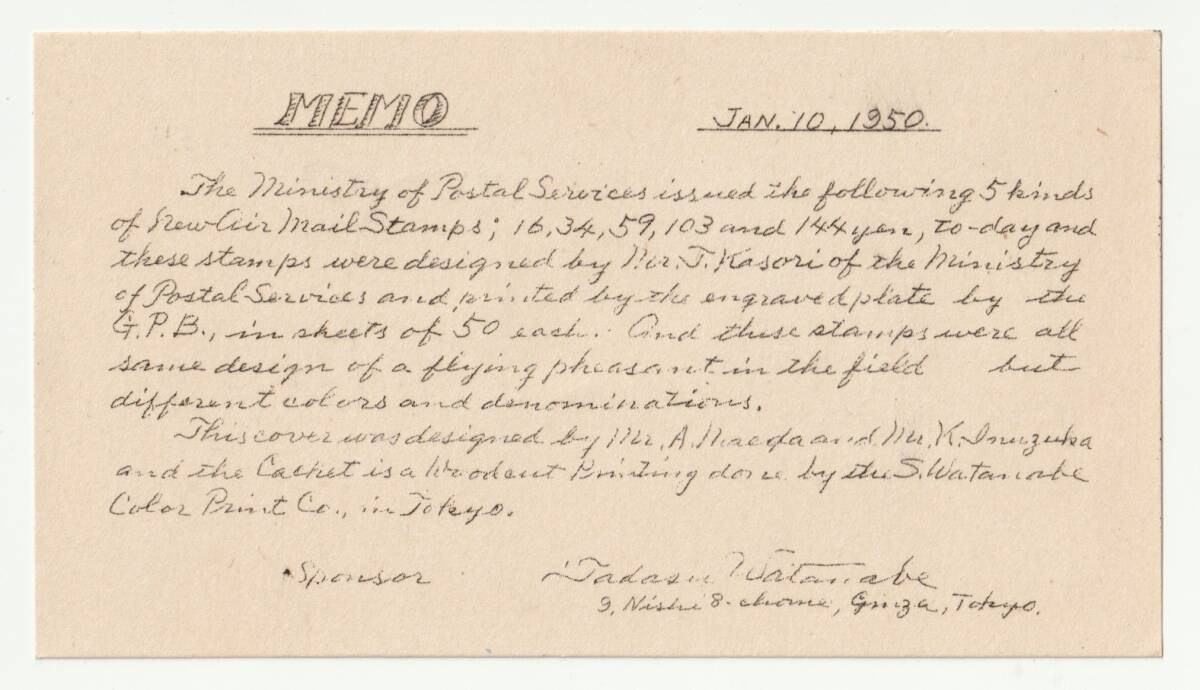 MEMO
JAN. 10, 1950.
The Ministry of Postal Services issued the following 5 kinds
of New Air Mail Stamps; 16, 34, 59, 103 and 144 yen, to-day and
these stamps were designed by Mr. T. Kasori of the Ministry
of Postal Services and printed by the engraved plate by the
G.P.B., in sheets of 50 each. And these stamps were all
same design of a flying pheasant in the field but
different colors and denominations.
This cover was designed by Mr. A. Maeda and Mr. K. Inuzuka
and the Cachet is a Woodcut Printing done by the S. Watanabe
Color Print Co., in Tokyo.
Sponsor
Tadasu Watanabe
9, Nishi 8-chome, Ginza, Tokyo.